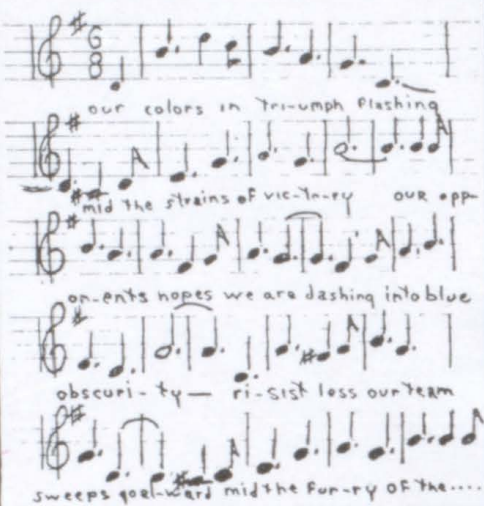 6
8
our colors in tri-umph flashing
mid the strains of vic-to-ry our opp-
on-ents hopes we are dashing into blue
obscuri-ty — ri-sist less our team
sweeps goal-ward mid the fur-ry of the....